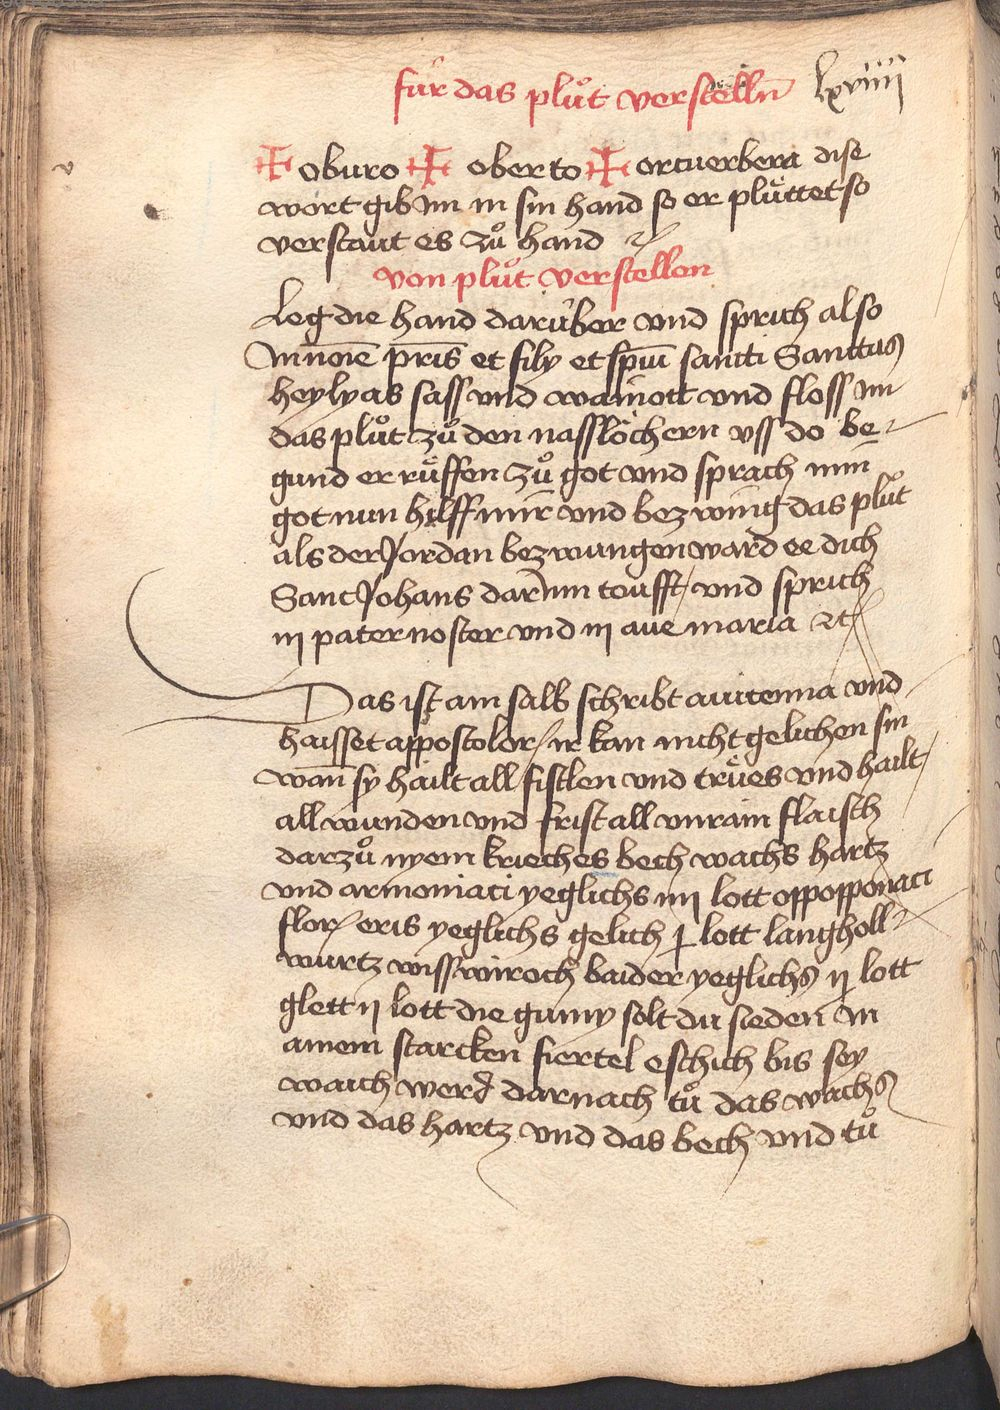 für das plůt verstelln̄ lxviiii
✠ oburo ✠ oberto ✠ orcuerbera dise
wort gib im in sin hand so er plu̇ttet so
verstaut es zů hand
von plůt verstellen
Leg die hand darüber vnd sprich also
In noīe pr̄is et fily et sp̄ui sancti Sanctus
heylyas sass vnd wainott vnd floss im
das plůt zů den nasslöchern vss do be-
gund er rüffen zů got vnd sprach min
got nun hilff mir vnd bezwing das plůt
als der Jordan bezwungen ward ee dich
Sanct Johans darinn toufft / vnd sprich
iij pater noster vnd iij aue maria etc
Das ist ain salb schribt auicenna vnd
haisset appostolor / ir kan nicht gelichen sin
wan̄ sy hailt all fistlen vnd trües vnd hailt /
all wunden vnd frist all vnrain flaisch
darzů nyem krieches bech wachs hartz
vnd armoniaci yeglichs iiij lott oppopponaci
flor eris yeglichs gelich j lott langholl-
wurtz wiss wiroch baider yeglichs ij lott
glett ij lott die gumy solt du sieden In
ainem starcken fiertel eschich bis sey
waich werd darnach tů das wachs
vnd das hartz vnd das bech vnd tů